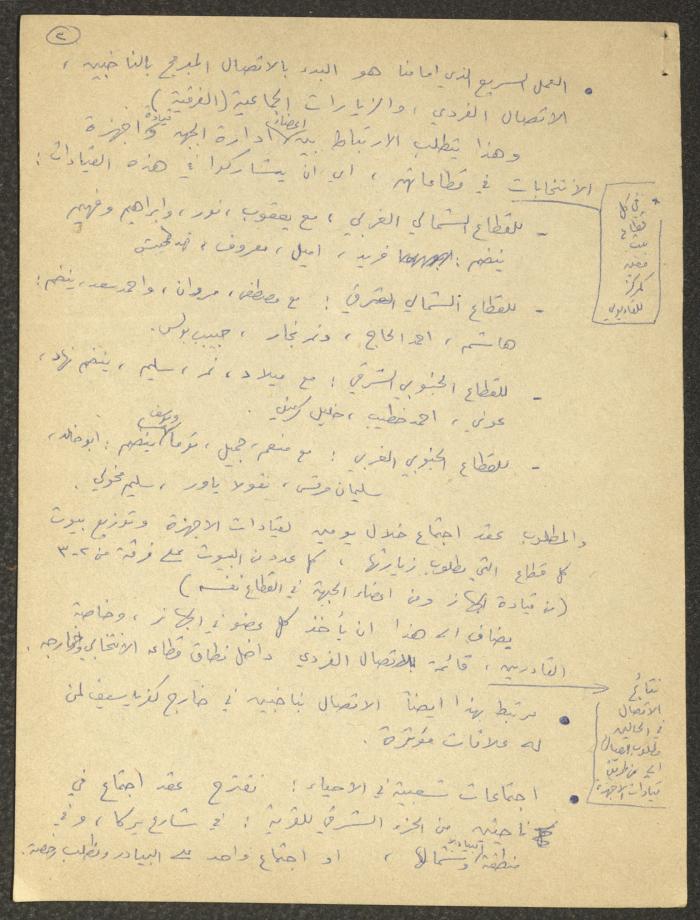 ٢
• العمل السريع الذي امامنا هو البدء بالاتصال المبرمج بالناخبين ،
الاتصال الفردي ، والزيارات الجماعية (الفرقية)
وهذا يتطلب الارتباط بين اعضاء ادارة الجبهة وقيادة اجهزة
الانتخابات في قطاعاتهم ، اي ان يشاركوا في هذه القيادات :
- للقطاع الشمالي الغربي ، مع يعقوب ، نور ، وابراهيم وفهيم
ينضم : فريد ، اميل ، معروف ،
- للقطاع الشمالي الشرقي : مع مصطفى ، مروان ، واحمد سعد ، ينضم :
هاشم ، احمد الحاج ، ونمر نجار ، حبيب بولس .
- للقطاع الجنوبي الشرقي : مع ميلاد ، نمر ، سليم ، ينضم نهاد ،
عوني ، احمد خطيب ، خليل
- للقطاع الجنوبي الغربي : مع منعم ، جميل ، توما ويوسف ينضم : ابو خالد ،
سليمان مرقس ، نقولا ياور ، سليم مخولي .
والمطلوب عقد اجتماع خلال يومين لقيادات الاجهزة وتوزيع بيوت
كل قطاع التي مطلوب زيارتها ، كل عدد من البيوت على فرقة من ٢-٣
(من قيادة الجهاز ومن اعضاء الجبهة في القطاع نفسه)
يضاف الى هذا ان يأخذ كل عضو في الجهاز ، وخاصة
القادرين ، قائمة للاتصال الفردي داخل نطاق قطاعه الانتخابي وخارجه .
• مرتبط بهذا ايضاً الاتصال بناخبين في خارج كفرياسيف لمن
له علاقات مؤثرة .
• اجتماعات شعبية في الاحياء : نقترح عقد اجتماع في
ناحيتين من الجزء الشرقي للقرية : في شارع يركا ، وفي
منطقة البيادر وشمالها ، او اجتماع واحد على البيادر ونطلب رخصة .
* في كل
قطاع
بيت
معين
كمركز
نتائج
الاتصال
في الحالين
مطلوب ايصالها
الي عن طريق
قيادات الاجهزة